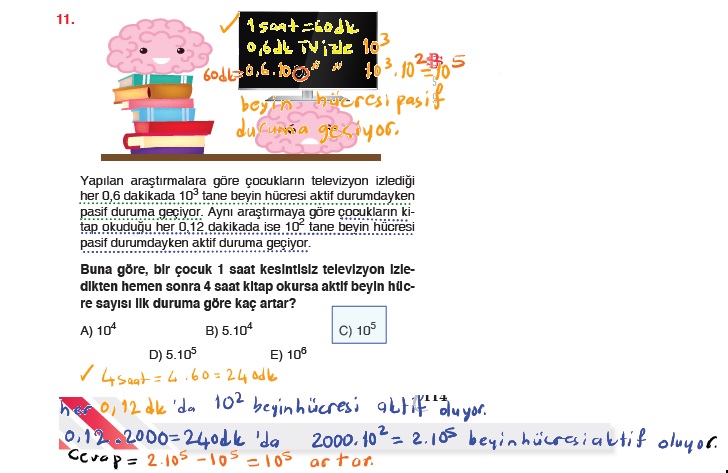 11.
✓ 1 saat = 60dk
0,6dk TV izle 10³
60dk = 0,6.100 " " 10³.10² = 10⁵
beyin hücresi pasif
duruma geçiyor.
Yapılan araştırmalara göre çocukların televizyon izlediği
her 0,6 dakikada 10³ tane beyin hücresi aktif durumdayken
pasif duruma geçiyor. Aynı araştırmaya göre çocukların ki-
tap okuduğu her 0,12 dakikada ise 10² tane beyin hücresi
pasif durumdayken aktif duruma geçiyor.
Buna göre, bir çocuk 1 saat kesintisiz televizyon izle-
dikten hemen sonra 4 saat kitap okursa aktif beyin hüc-
re sayısı ilk duruma göre kaç artar?
A) 10⁴ B) 5.10⁴ C) 10⁵
D) 5.10⁵ E) 10⁶
✓ 4 saat = 4.60 = 240dk
her 0,12 dk 'da 10² beyin hücresi aktif oluyor.
0,12.2000 = 240dk 'da 2000.10² = 2.10⁵ beyin hücresi aktif oluyor.
Cevap = 2.10⁵ - 10⁵ = 10⁵ artar.